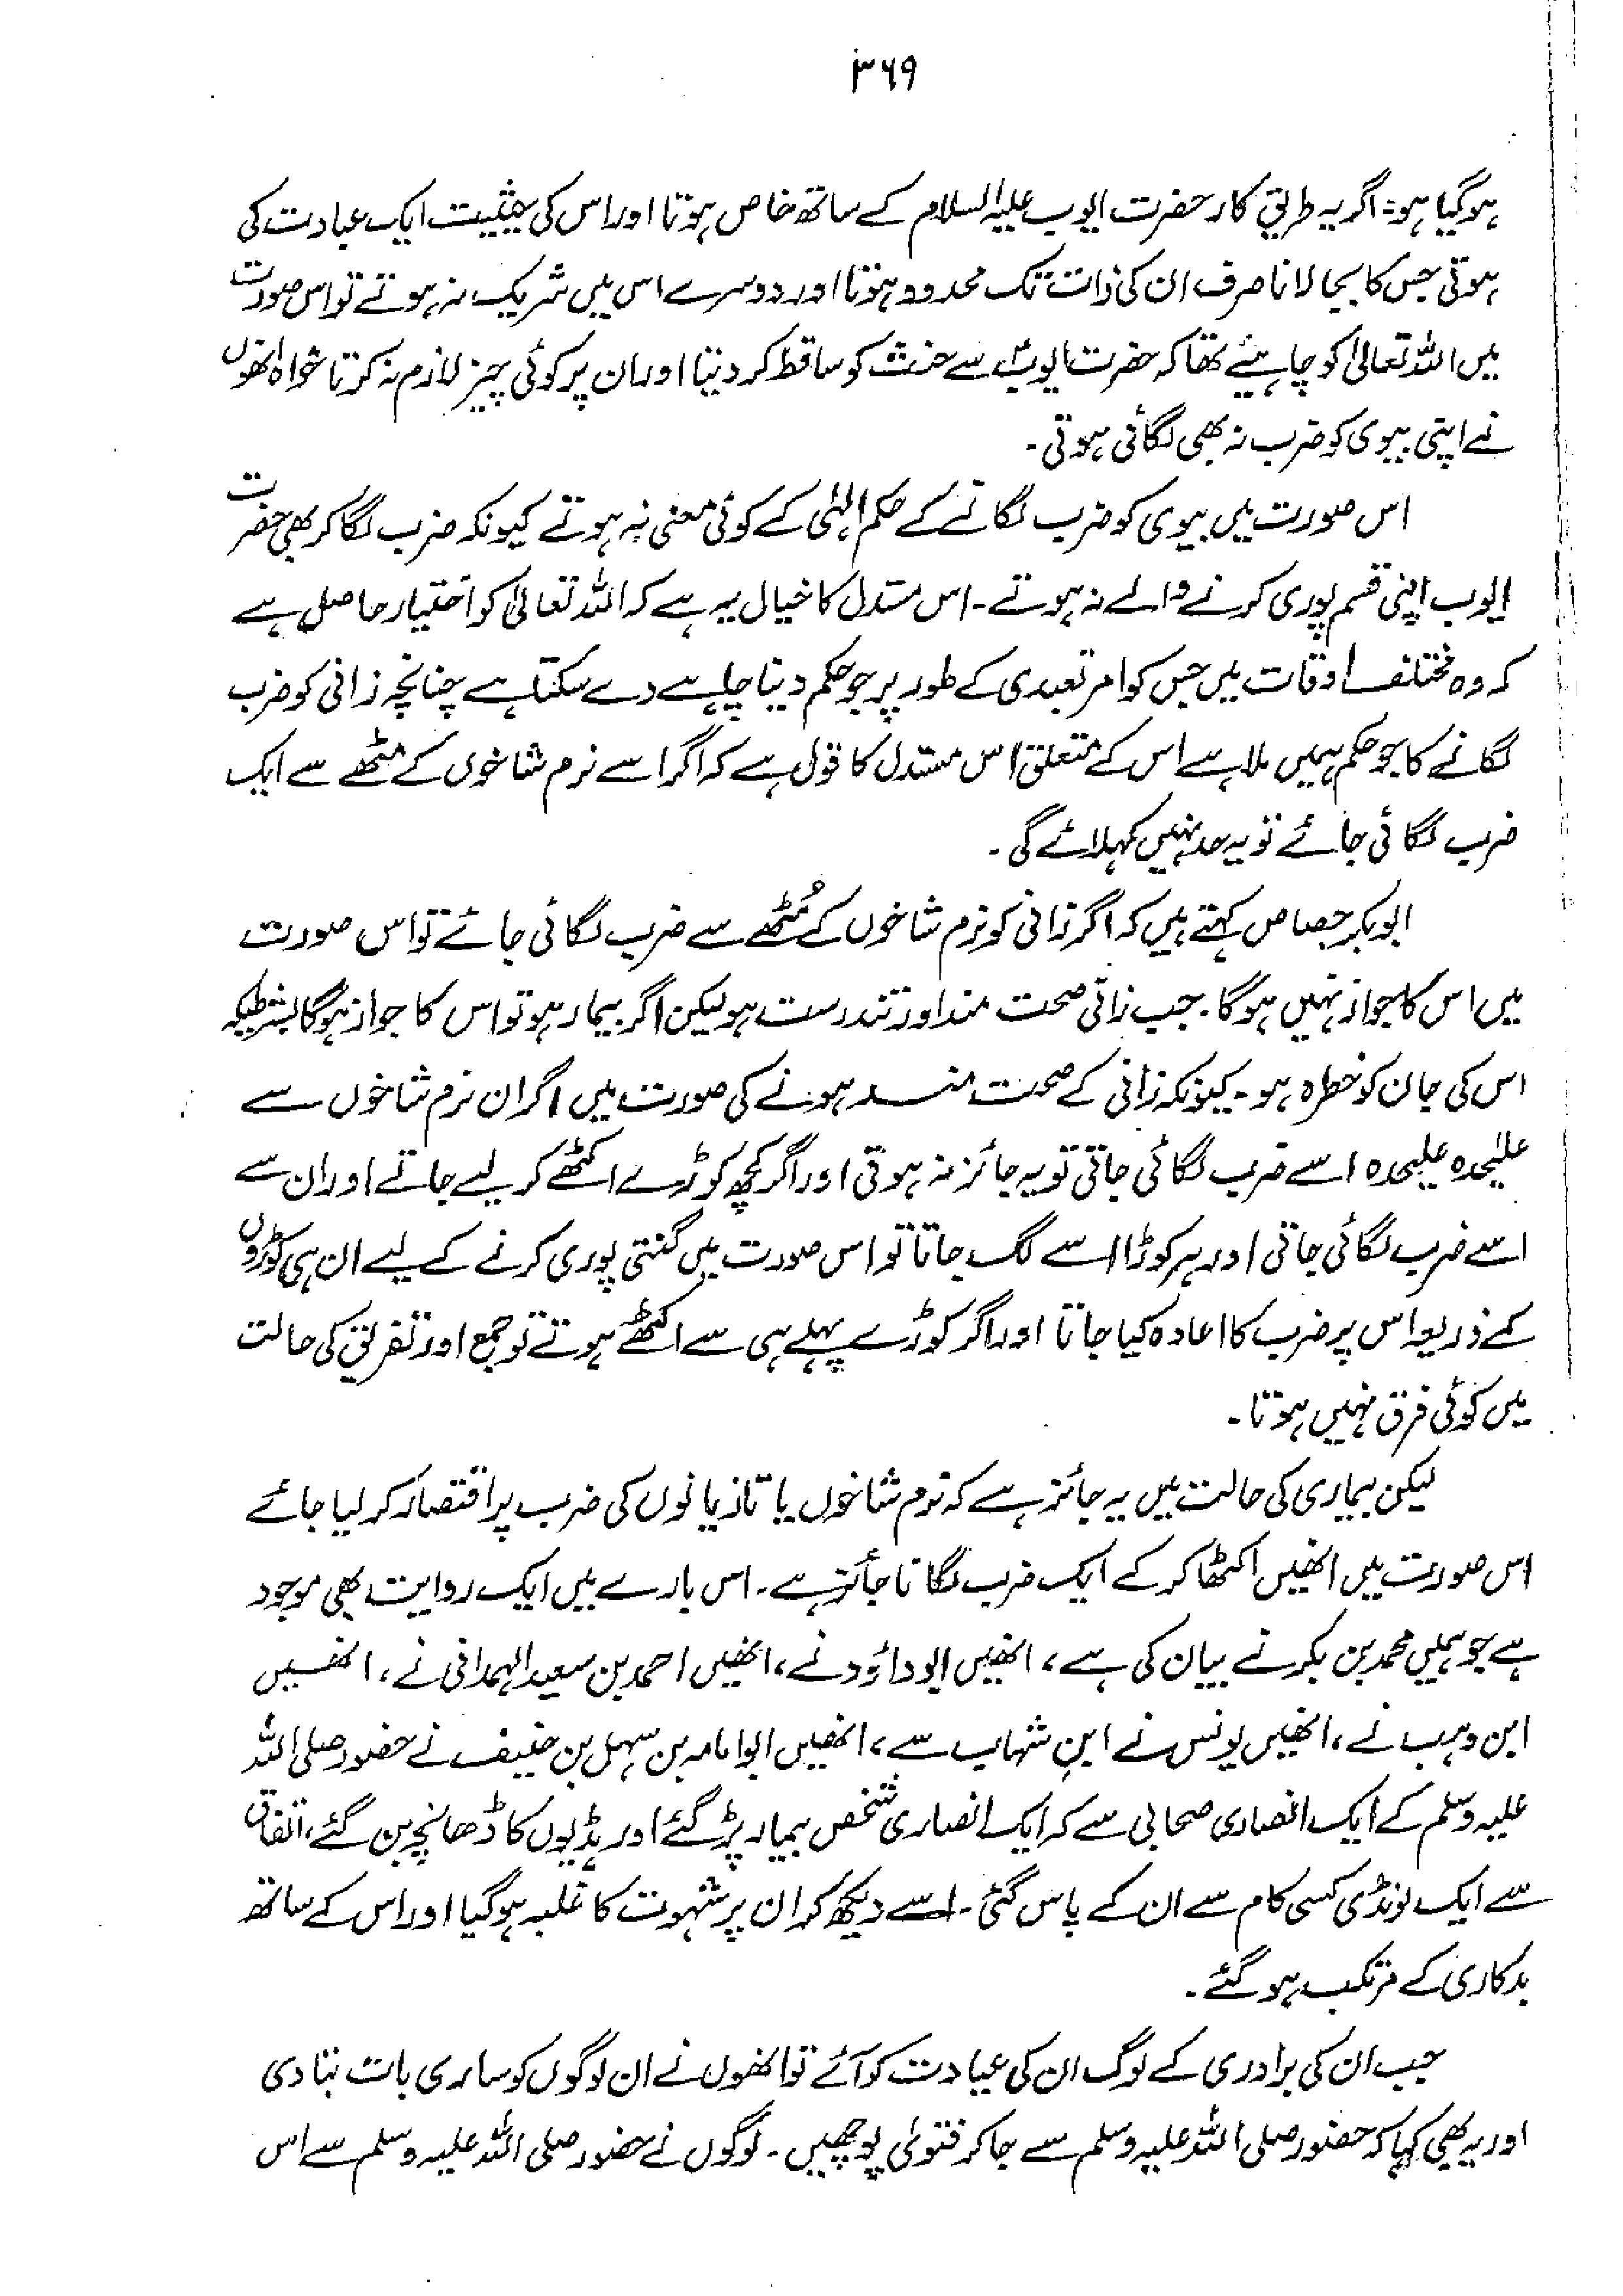 ۳۶۹
ہوگیا ہو۔ اگر یہ طریق کار حضرت ایوب علیہ السلام کے ساتھ خاص ہوتا اور اس کی حیثیت ایک عبادت کی
ہوتی جس کا بجا لانا صرف ان کی ذات تک محدود ہوتا اور دوسرے اس میں شریک نہ ہوتے تو اس صورت
میں اللہ تعالیٰ کو چاہیئے تھا کہ حضرت ایوبؑ سے حنث کو ساقط کر دیتا اور ان پر کوئی چیز لازم نہ کرتا خواہ انھوں
نے اپنی بیوی کو ضرب نہ بھی لگائی ہوتی۔
اس صورت میں بیوی کو ضرب لگانے کے حکم الٰہی کے کوئی معنی نہ ہوتے کیونکہ ضرب لگا کر بھی حضرت
ایوب اپنی قسم پوری کرنے والے نہ ہوتے۔ اس مستدل کا خیال یہ ہے کہ اللہ تعالیٰ کو اختیار حاصل ہے
کہ وہ مختلف اوقات میں جس کو امر تعبدی کے طور پر جو حکم دینا چاہے دے سکتا ہے چنانچہ زانی کو ضرب
لگانے کا جو حکم ہمیں ملا ہے اس کے متعلق اس مستدل کا قول ہے کہ اگر اسے نرم شاخوں کے مٹھے سے ایک
ضرب لگائی جائے تو یہ حد نہیں کہلائے گی۔
ابوبکر جصاص کہتے ہیں کہ اگر زانی کو نرم شاخوں کے مُٹھے سے ضرب لگائی جائے تو اس صورت
میں اس کا جواز نہیں ہوگا۔ جب زانی صحت مند اور تندرست ہو لیکن اگر بیمار ہو تو اس کا جواز ہوگا بشرطیکہ
اس کی جان کو خطرہ ہو۔ کیونکہ زانی کے صحت مند ہونے کی صورت میں اگر ان نرم شاخوں سے
علیٰحدہ علیٰحدہ اسے ضرب لگائی جاتی تو یہ جائز نہ ہوتی اور اگر کچھ کوڑے اکٹھے کر لیے جاتے اور ان سے
اسے ضرب لگائی جاتی اور ہر کوڑا اسے لگ جاتا تو اس صورت میں گنتی پوری کرنے کے لیے ان ہی کوڑوں
کے ذریعہ اس پر ضرب کا اعادہ کیا جاتا اور اگر کوڑے پہلے ہی سے اکٹھے ہوتے تو جمع اور تفریق کی حالت
میں کوئی فرق نہیں ہوتا۔
لیکن بیماری کی حالت میں یہ جائز ہے کہ نرم شاخوں یا تازیانوں کی ضرب پر اقتصار کر لیا جائے
اس صورت میں انھیں اکٹھا کر کے ایک ضرب لگانا جائز ہے۔ اس بارے میں ایک روایت بھی موجود
ہے جو ہمیں محمد بن بکر نے بیان کی ہے، انھیں ابو داؤد نے، انھیں احمد بن سعید الہمدانی نے، انھیں
ابن وہب نے، انھیں یونس نے ابن شہاب سے، انھیں ابو امامہ بن سہل بن حنیف نے حضور صلی اللہ
علیہ وسلم کے ایک انصاری صحابی سے کہ ایک انصاری شخص بیمار پڑ گئے اور ہڈیوں کا ڈھانچہ بن گئے، اتفاق
سے ایک لونڈی کسی کام سے ان کے پاس گئی۔ اسے دیکھ کر ان پر شہوت کا غلبہ ہو گیا اور اس کے ساتھ
بدکاری کے مرتکب ہو گئے۔
جب ان کی برادری کے لوگ ان کی عیادت کو آئے تو انھوں نے ان لوگوں کو ساری بات بتا دی
اور یہ بھی کہا کہ حضور صلی اللہ علیہ وسلم سے جا کر فتویٰ پوچھیں۔ لوگوں نے حضور صلی اللہ علیہ وسلم سے اس